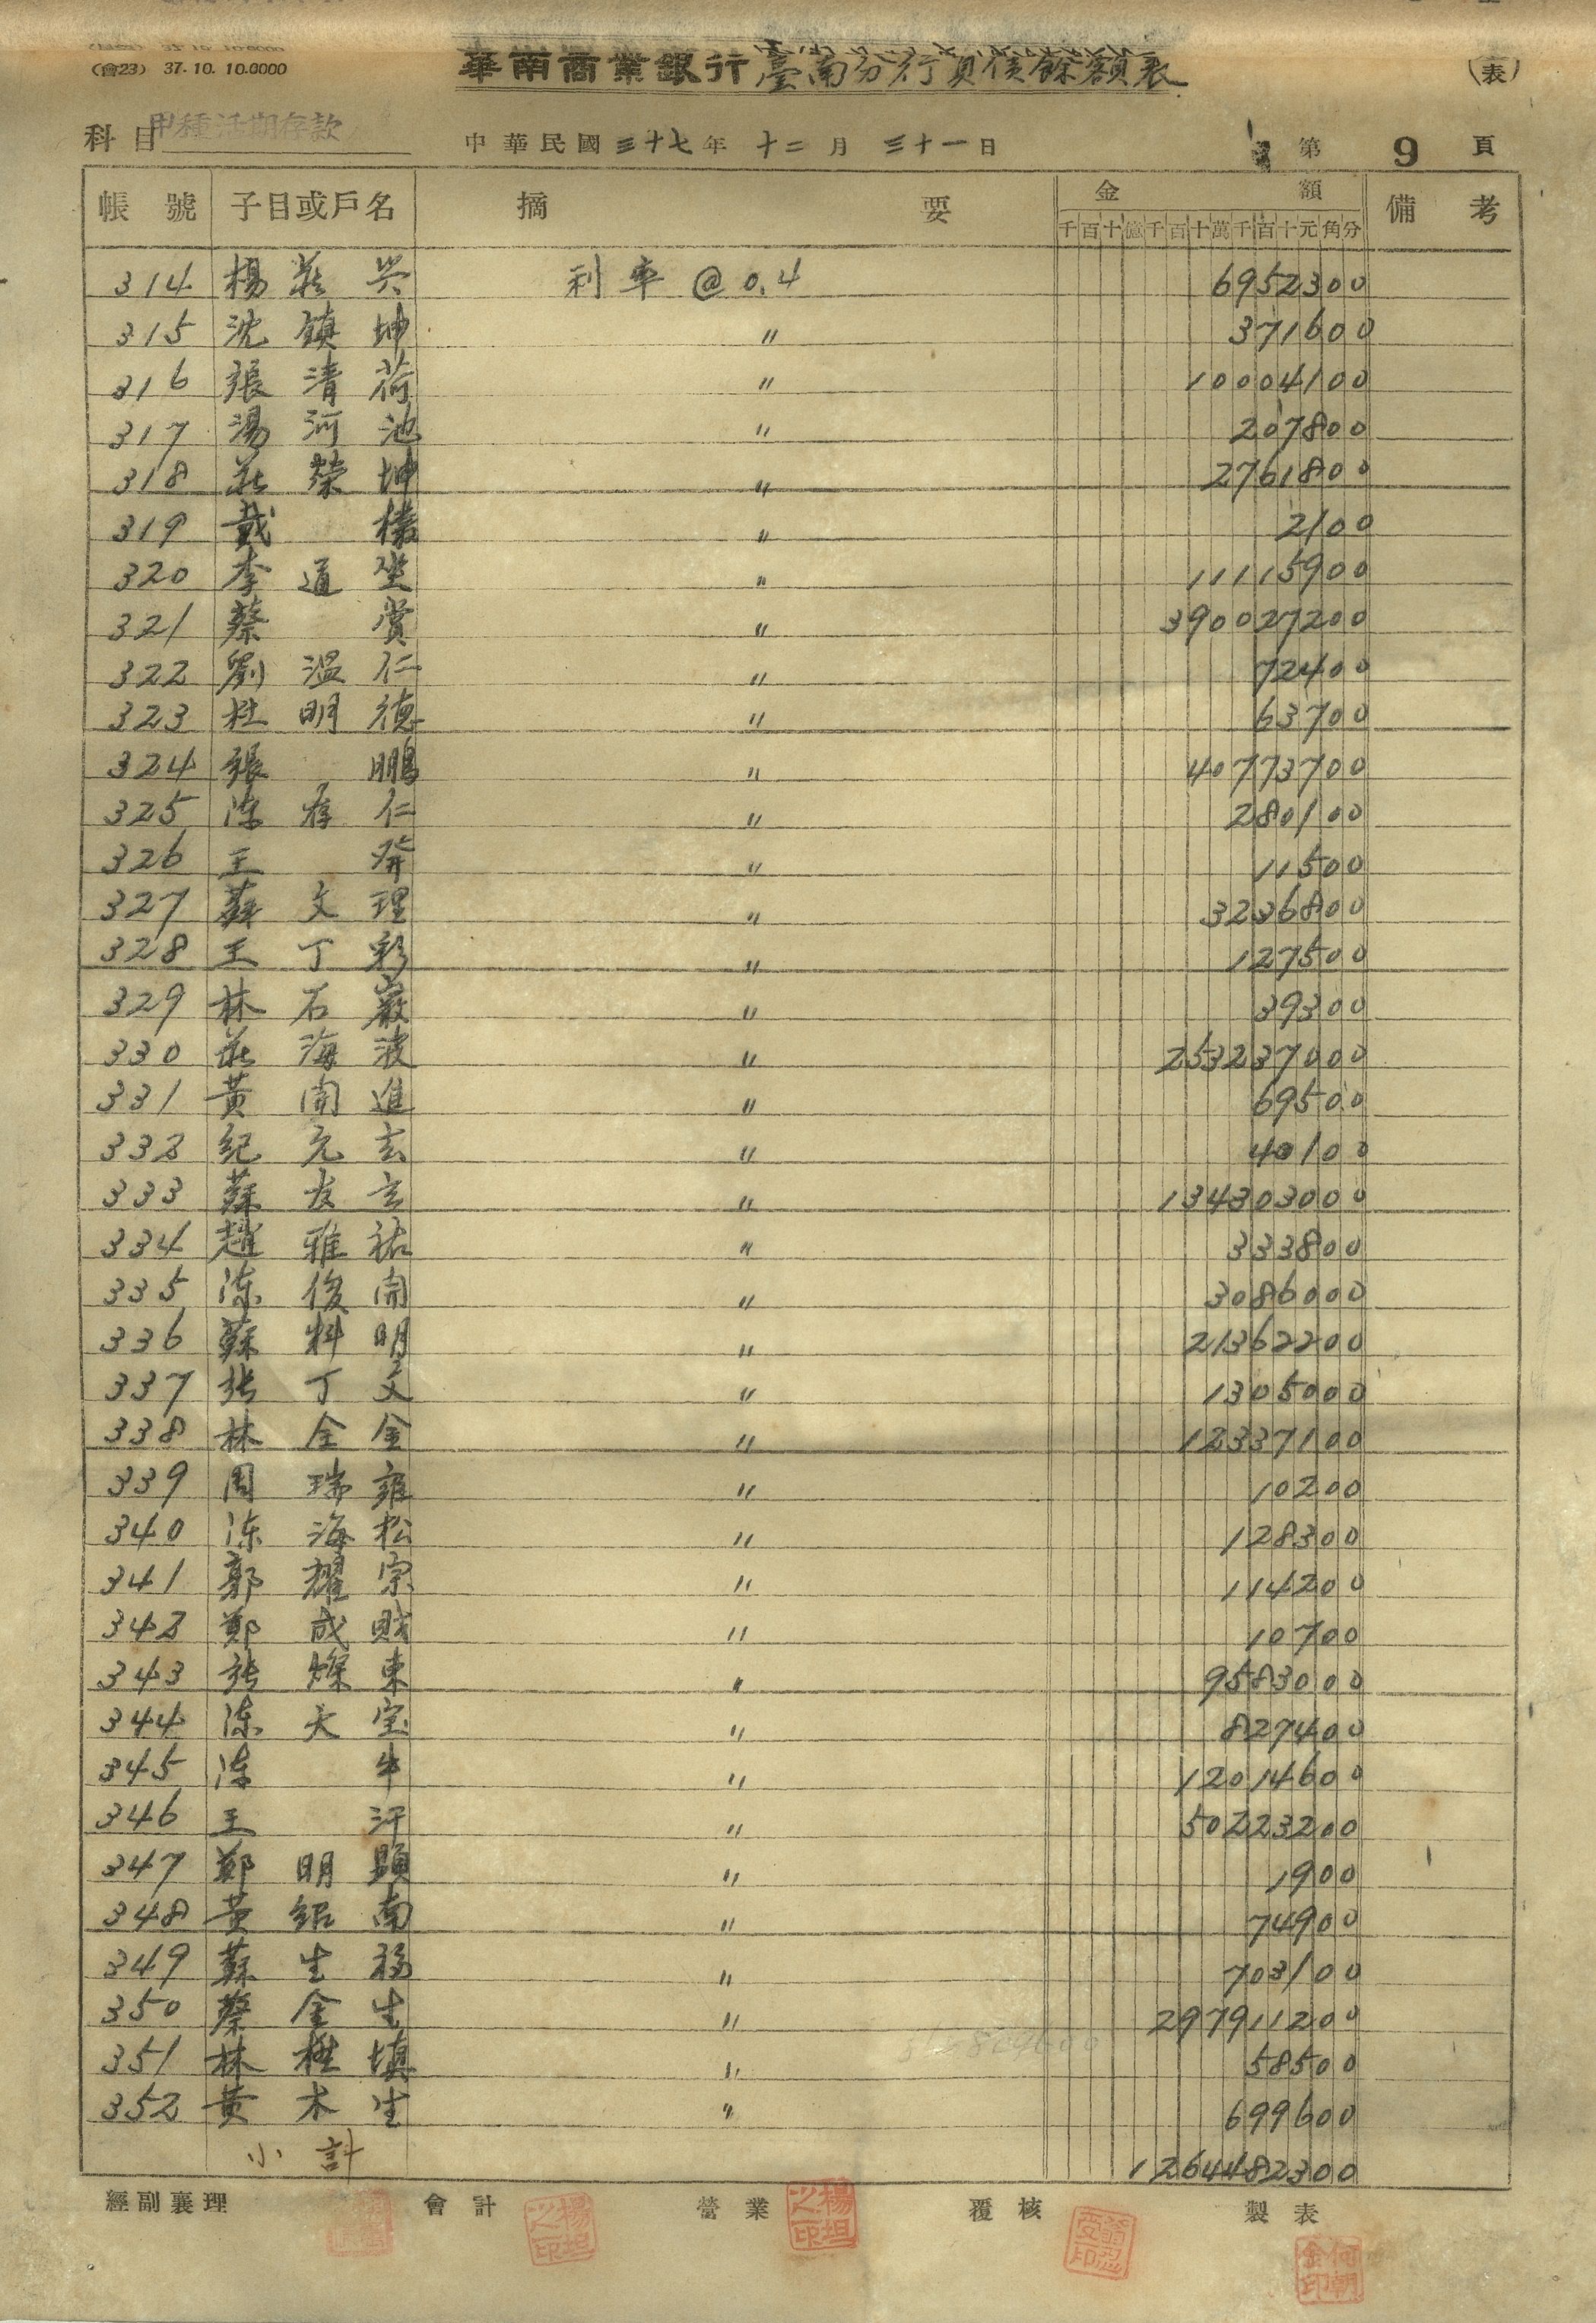 (會23) 37.10.10.0000
華南商業銀行臺南分行負債餘額表
(表)
科目 甲種活期存款
中華民國三十七年十二月三十一日
第 9 頁
帳號 子目或戶名 摘要 金額 備考
千百十億千百十萬千百十元角分
314 楊莊興 利率@0.4 6952300
315 沈鎮坤 〃 371600
316 張清荷 〃 10004100
317 湯河池 〃 207800
318 莊榮坤 〃 2761800
319 戴 〃 2100
320 李道坐 〃 11115900
321 蔡賞 〃 390027200
322 劉溫仁 〃 72400
323 杜明德 〃 63700
324 張鵬 〃 40773700
325 陈存仁 〃 280100
326 王 〃 11500
327 蘇文理 〃 3236800
328 王丁彩 〃 127500
329 林石巖 〃 39300
330 莊海波 〃 253237000
331 黃開進 〃 69500
332 紀元玄 〃 40100
333 蘇友玄 〃 134303000
334 趙雅祐 〃 333800
335 陈俊開 〃 3086000
336 蘇料明 〃 21362200
337 张丁文 〃 1305000
338 林全金 〃 12337100
339 周瑞雍 〃 10200
340 陈海松 〃 128300
341 郭耀宗 〃 114200
342 鄭成財 〃 10700
343 张燦東 〃 9583000
344 陈天宝 〃 827400
345 陈牛 〃 12014600
346 王汗 〃 50223200
347 鄭明顕 〃 1900
348 黃紹南 〃 74900
349 蘇生福 〃 703100
350 蔡金生 〃 297911200
351 林樹填 〃 58500
352 黃木生 〃 699600
小計 1264482300
經副襄理 會計 營業 覆核 製表
楊坦之印
楊坦之印
何朝金印